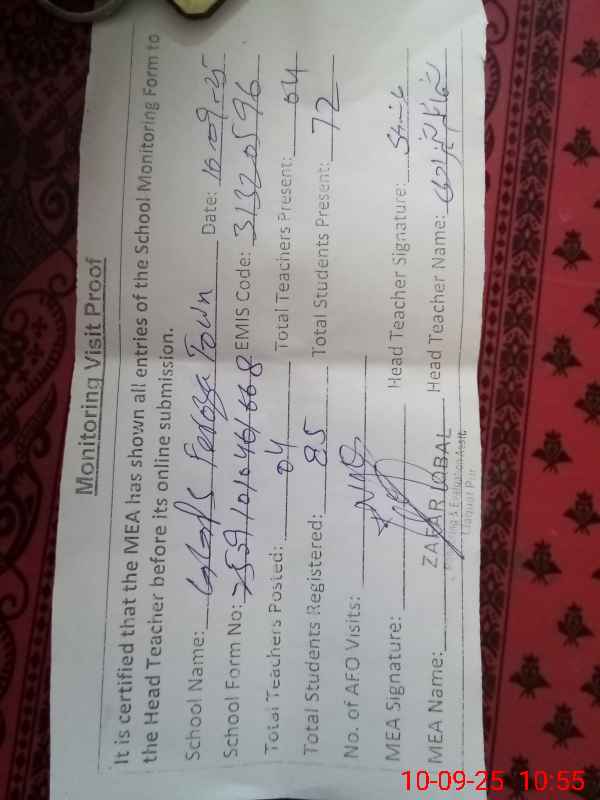 Monitoring Visit Proof
It is certified that the MEA has shown all entries of the School Monitoring Form to
the Head Teacher before its online submission.
School Name: Feroza Town Date: 10-09-25
School Form No: EMIS Code: 31320596
Total Teachers Posted: 04 Total Teachers Present: 04
Total Students Registered: 85 Total Students Present: 72
No. of AFO Visits:
MEA Signature: Head Teacher Signature:
MEA Name: ZAFAR IQBAL Head Teacher Name:
Monitoring & Evaluation Assit.
Liaquat Pur
10-09-25 10:55